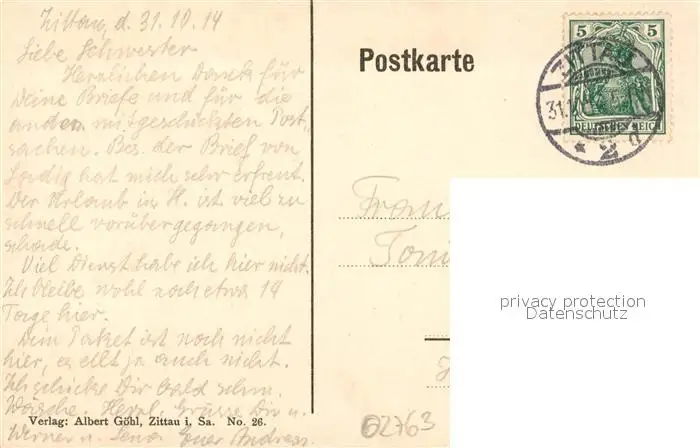 Zittau, d. 31.10.14
Liebe Schwester
Herzlichen Dank für
Deine Briefe und für die
andern mitgeschickten Post-
sachen. Bes. der Brief von
hat mich sehr erfreut.
Der Urlaub in H. ist viel zu
schnell vorübergegangen,
schade.
Viel Dienst habe ich hier nicht.
Ich bleibe wohl noch etwa 14
Tage hier.
Dein Paket ist noch nicht
hier, es eilt ja auch nicht.
Ich schicke Dir bald schm.
Wäsche. Herzl. Grüsse Dir u.
Werner u. Lena Euer Andreas
Verlag: Albert Göhl, Zittau i. Sa. No. 26.
Postkarte
5 5
DEUTSCHES REICH
ZITTAU
31.
* 2 d
Frau
Toni
privacy protection
Datenschutz
02763